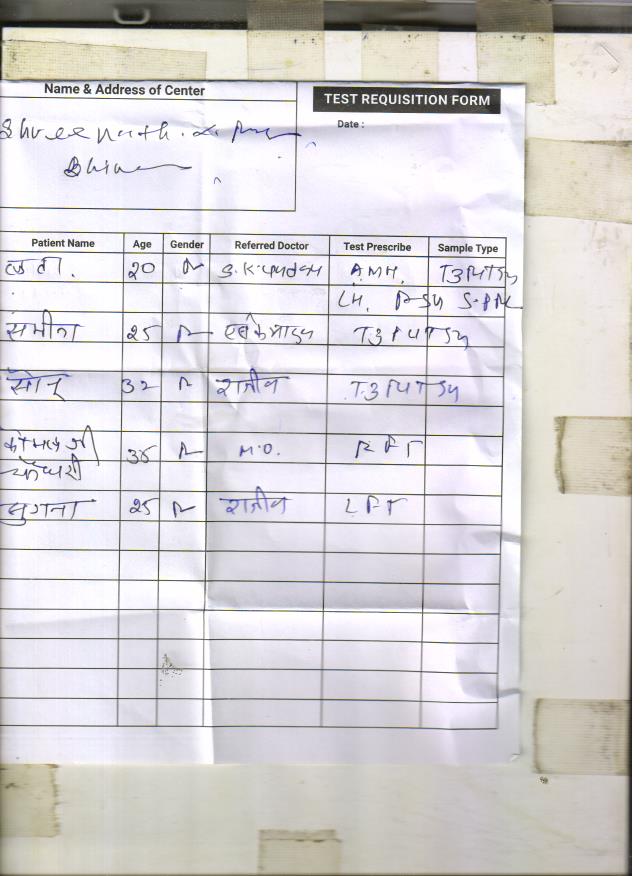 Name & Address of Center
TEST REQUISITION FORM
Date :
Shreenath
Patient Name Age Gender Referred Doctor Test Prescribe Sample Type
लता. 20 F AMH, T3T4TSH
LH, FSH S.PRL
समीना 25 F T3T4TSH
सोनू 32 F राजीव T3T4TSH
कोमल 35 F M.O. RFT
चौधरी
सुगना 25 F राजीव LFT